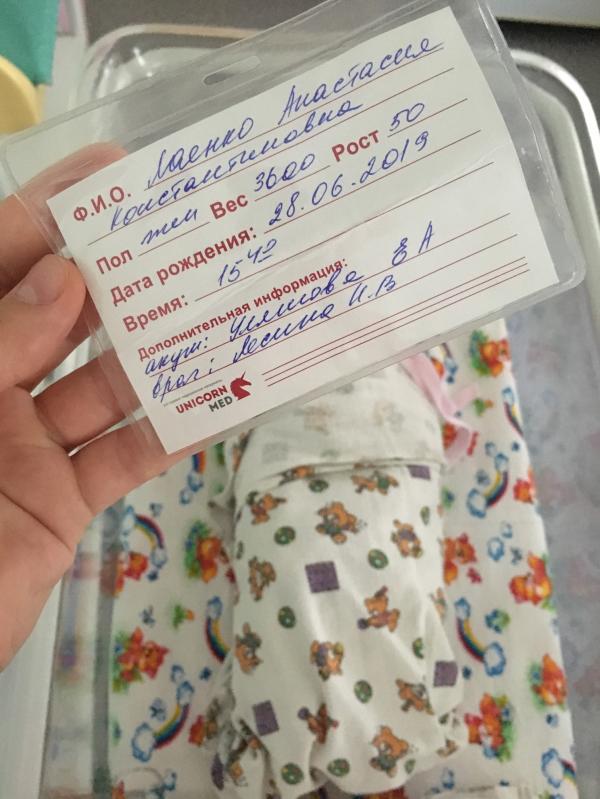 Ф.И.О. Лаенко Анастасия
Константиновна
Пол жен Вес 3600 Рост 50
Дата рождения: 28.06.2019
Время: 15 42
Дополнительная информация:
акуш: Е А
врач: Лесина И.В
UNICORN
MED